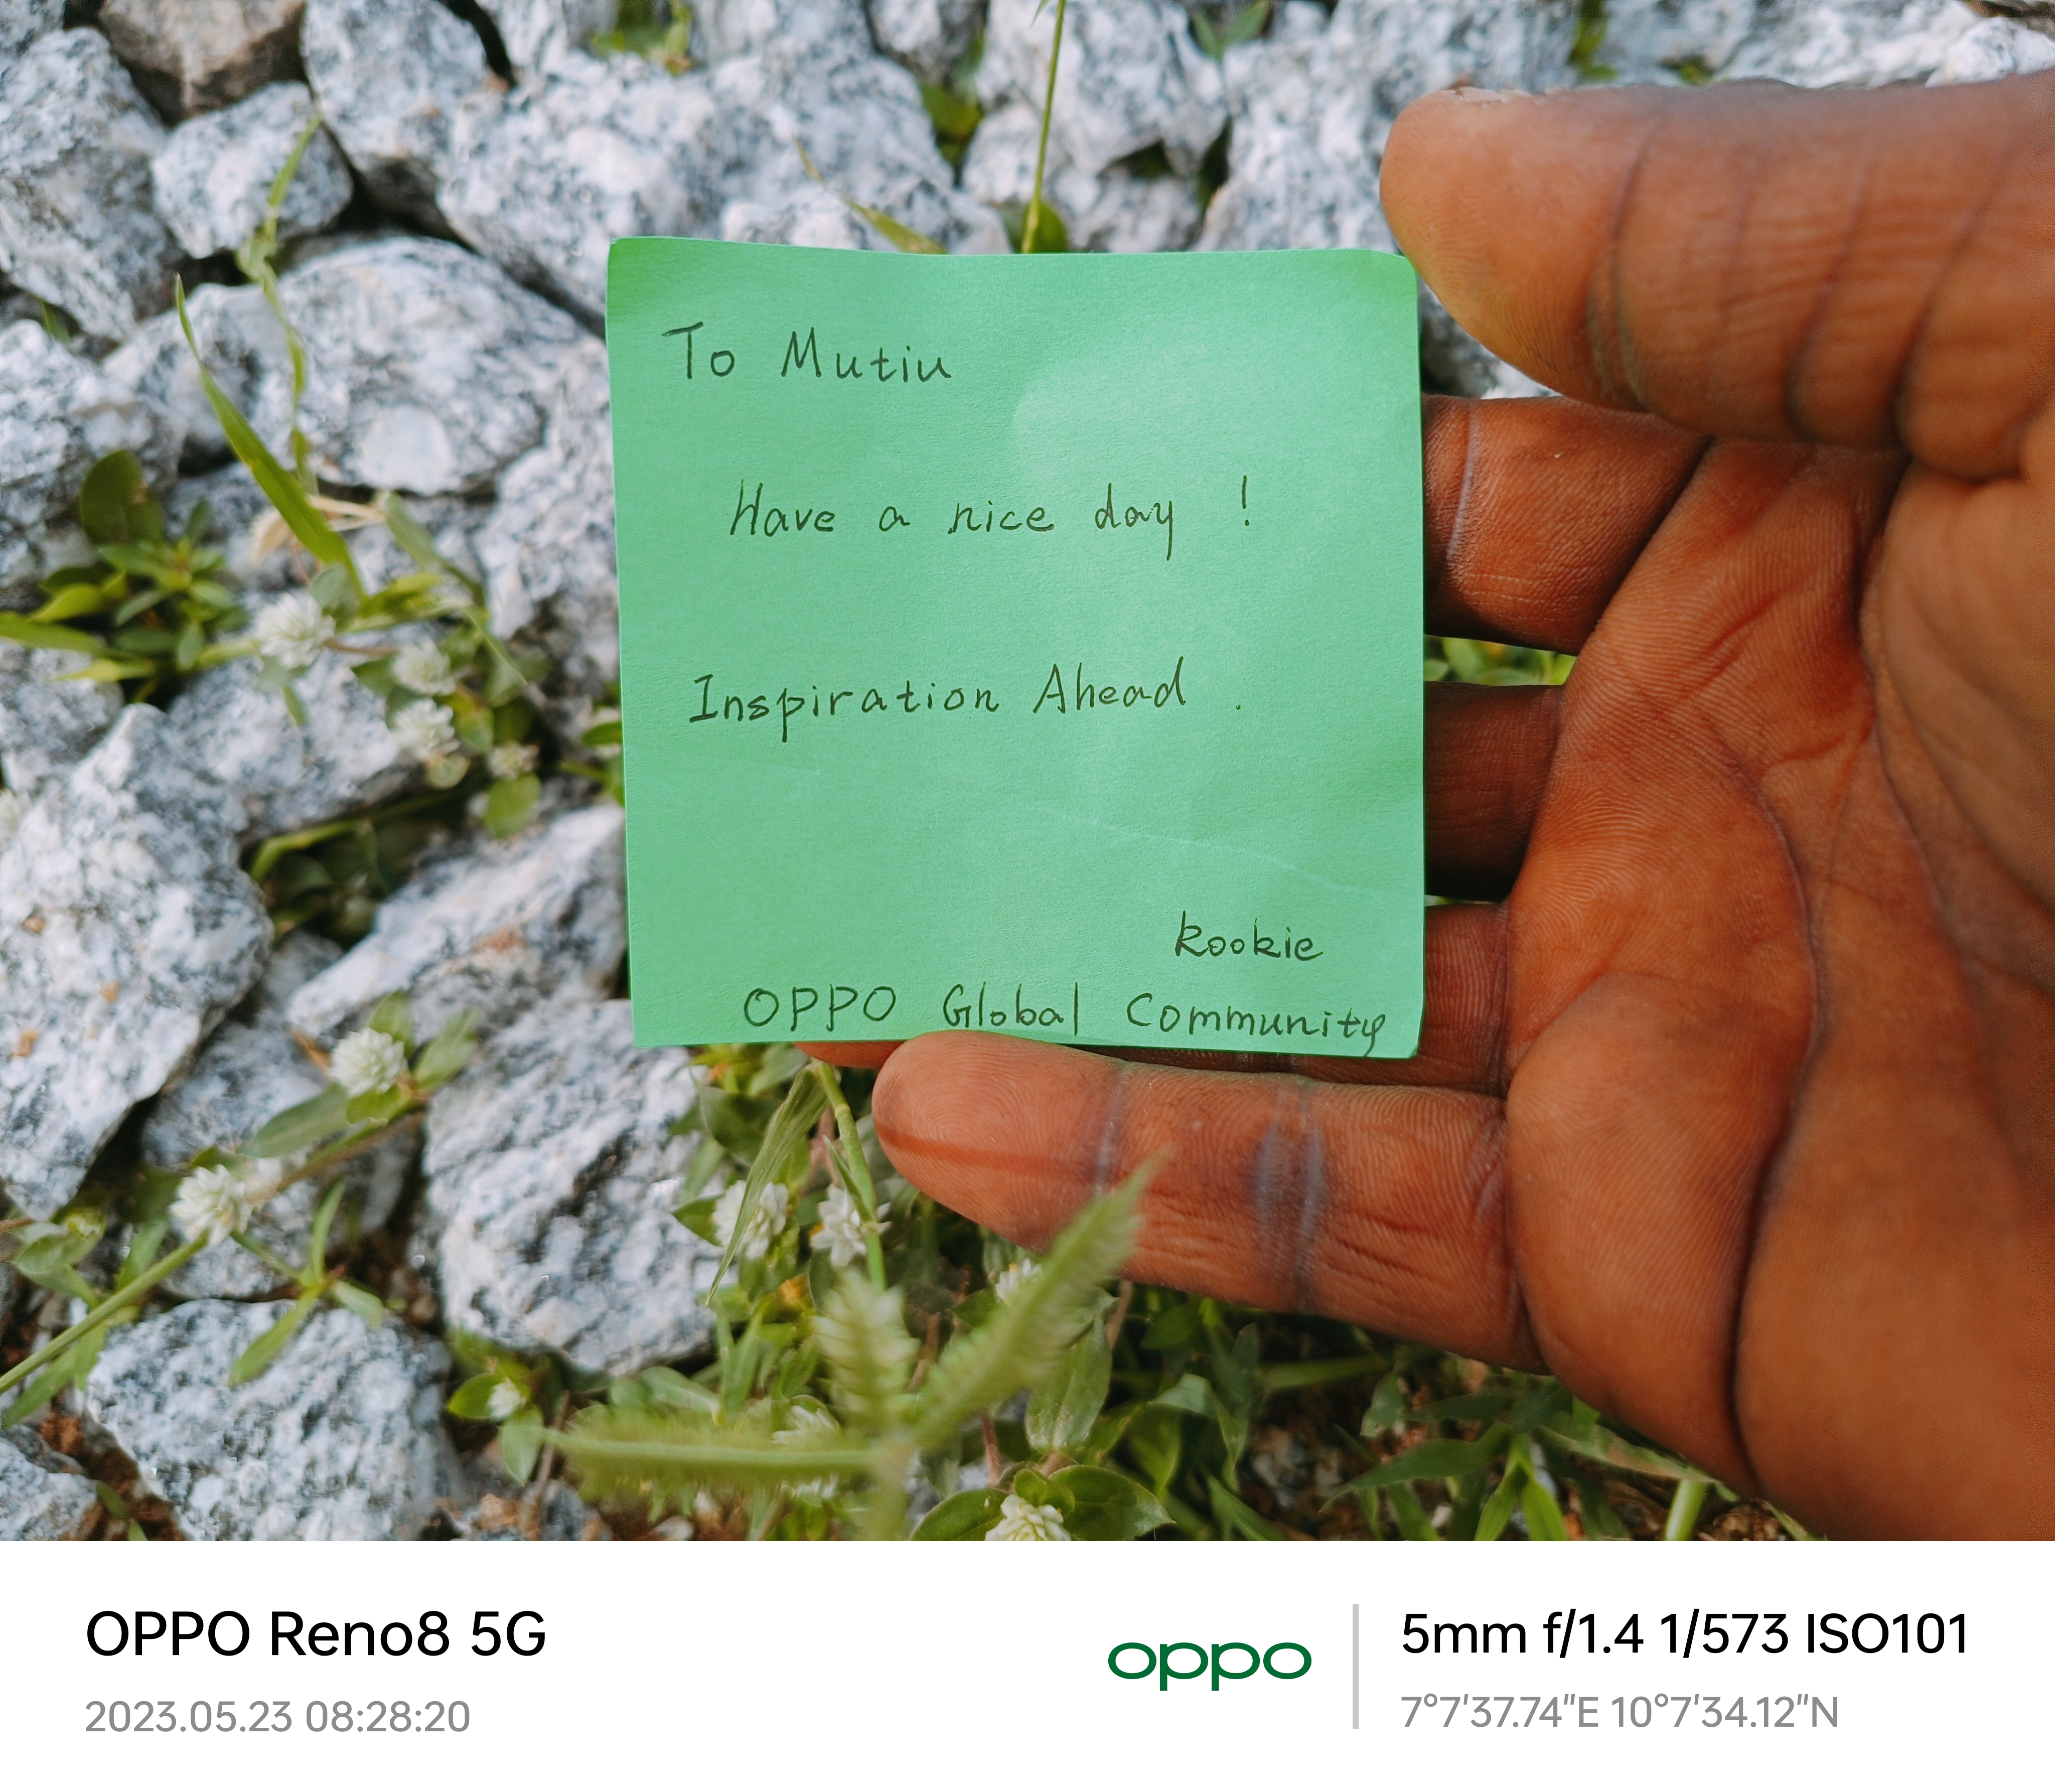 To Mutiu
Have a nice day !
Inspiration Ahead .
kookie
OPPO Global Community
OPPO Reno8 5G
2023.05.23 08:28:20
oppo
5mm f/1.4 1/573 ISO101
7°7'37.74"E 10°7'34.12"N